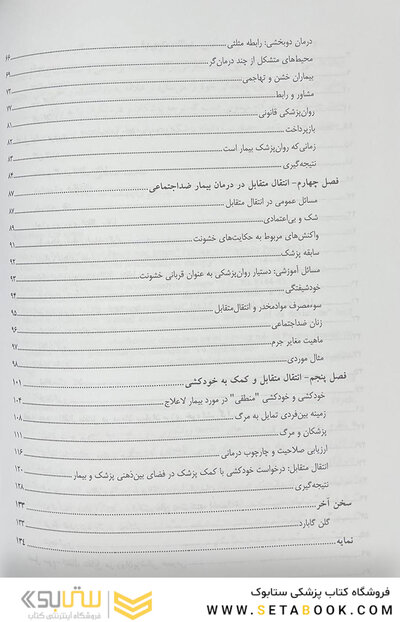 درمان دوبخشی: رابطه مثلثی ۶۶
محیط‌های متشکل از چند درمان‌گر ۶۹
بیماران خشن و تهاجمی ۷۳
مشاور و رابط ۷۷
روان‌پزشکی قانونی ۸۱
بازپرداخت ۸۲
زمانی‌که روان‌پزشک بیمار است ۸۳
نتیجه‌گیری ۸۴
فصل چهارم- انتقال متقابل در درمان بیمار ضداجتماعی ۸۷
مسائل عمومی در انتقال متقابل ۸۷
شک و بی‌اعتمادی ۸۹
واکنش‌های مربوط به حکایت‌های خشونت ۹۱
سابقه پزشک ۹۲
مسائل آموزشی: دستیار روان‌پزشکی به عنوان قربانی خشونت ۹۳
خودشیفتگی ۹۴
سوءمصرف موادمخدر و انتقال‌متقابل ۹۵
زنان ضداجتماعی ۹۶
ماهیت مغایر جرم ۹۷
مثال موردی ۹۸
فصل پنجم- انتقال متقابل و کمک به خودکشی ۱۰۱
خودکشی و خودکشی "منطقی" در مورد بیمار لاعلاج ۱۰۴
زمینه بین‌فردی تمایل به مرگ ۱۰۸
پزشکان و مرگ ۱۱۱
ارزیابی صلاحیت و چارچوب درمانی ۱۱۶
انتقال متقابل: درخواست خودکشی با کمک پزشک در فضای بین‌ذهنی پزشک و بیمار ۱۲۰
نتیجه‌گیری ۱۲۸
سخن آخر ۱۳۳
گلن گابارد ۱۳۳
نمایه ۱۳۴
فروشگاه کتاب پزشکی ستابوک
WWW.SETABOOK.COM
ستابوک
فروشگاه اینترنتی کتاب